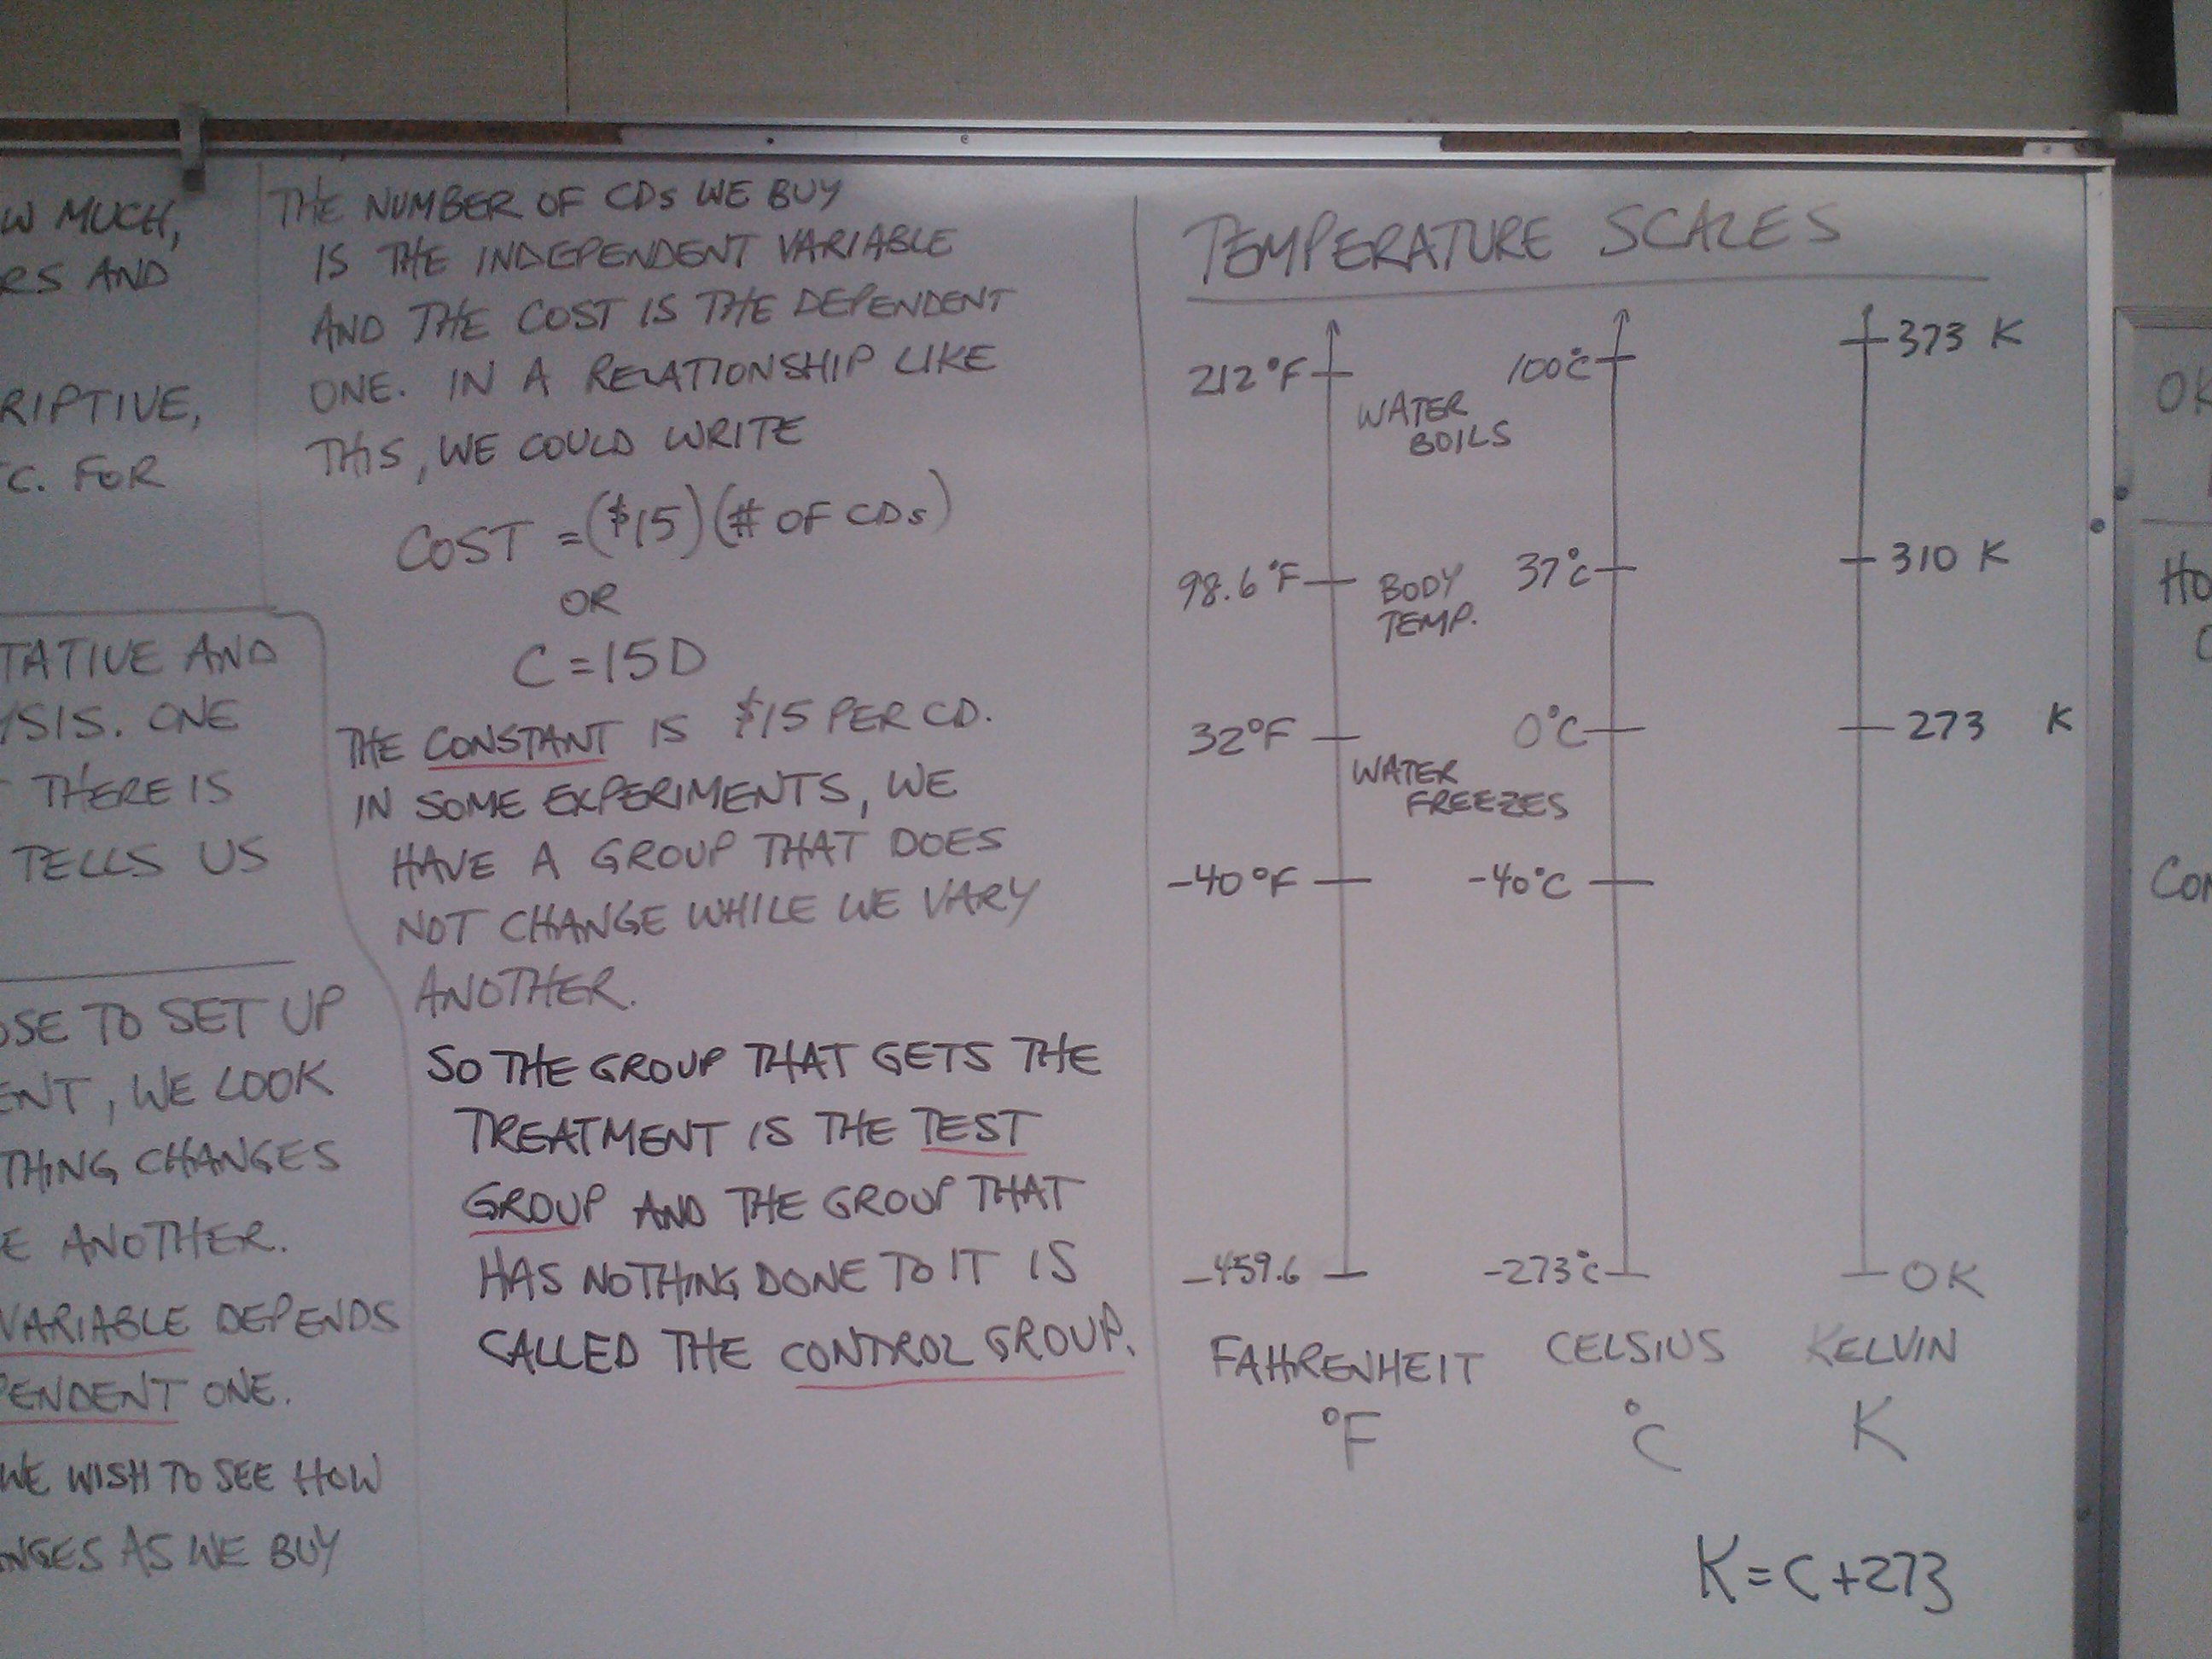 W MUCH,
RS AND
RIPTIVE,
C. FOR
TATIVE AND
YSIS. ONE
THERE IS
TELLS US
OSE TO SET UP
ENT, WE LOOK
THING CHANGES
E ANOTHER.
VARIABLE DEPENDS
PENDENT ONE.
WE WISH TO SEE HOW
NGES AS WE BUY
THE NUMBER OF CDs WE BUY
IS THE INDEPENDENT VARIABLE
AND THE COST IS THE DEPENDENT
ONE. IN A RELATIONSHIP LIKE
THIS, WE COULD WRITE
COST = ($15)(# OF CDs)
OR
C = 15D
THE CONSTANT IS $15 PER CD.
IN SOME EXPERIMENTS, WE
HAVE A GROUP THAT DOES
NOT CHANGE WHILE WE VARY
ANOTHER.
SO THE GROUP THAT GETS THE
TREATMENT IS THE TEST
GROUP AND THE GROUP THAT
HAS NOTHING DONE TO IT IS
CALLED THE CONTROL GROUP.
TEMPERATURE SCALES
212°F 100°C 373 K
WATER
BOILS
98.6°F 37°C 310 K
BODY
TEMP.
32°F 0°C 273 K
WATER
FREEZES
-40°F -40°C
-459.6 -273°C 0K
FAHRENHEIT CELSIUS KELVIN
°F °C K
K = C + 273
OK
HO
C
CON